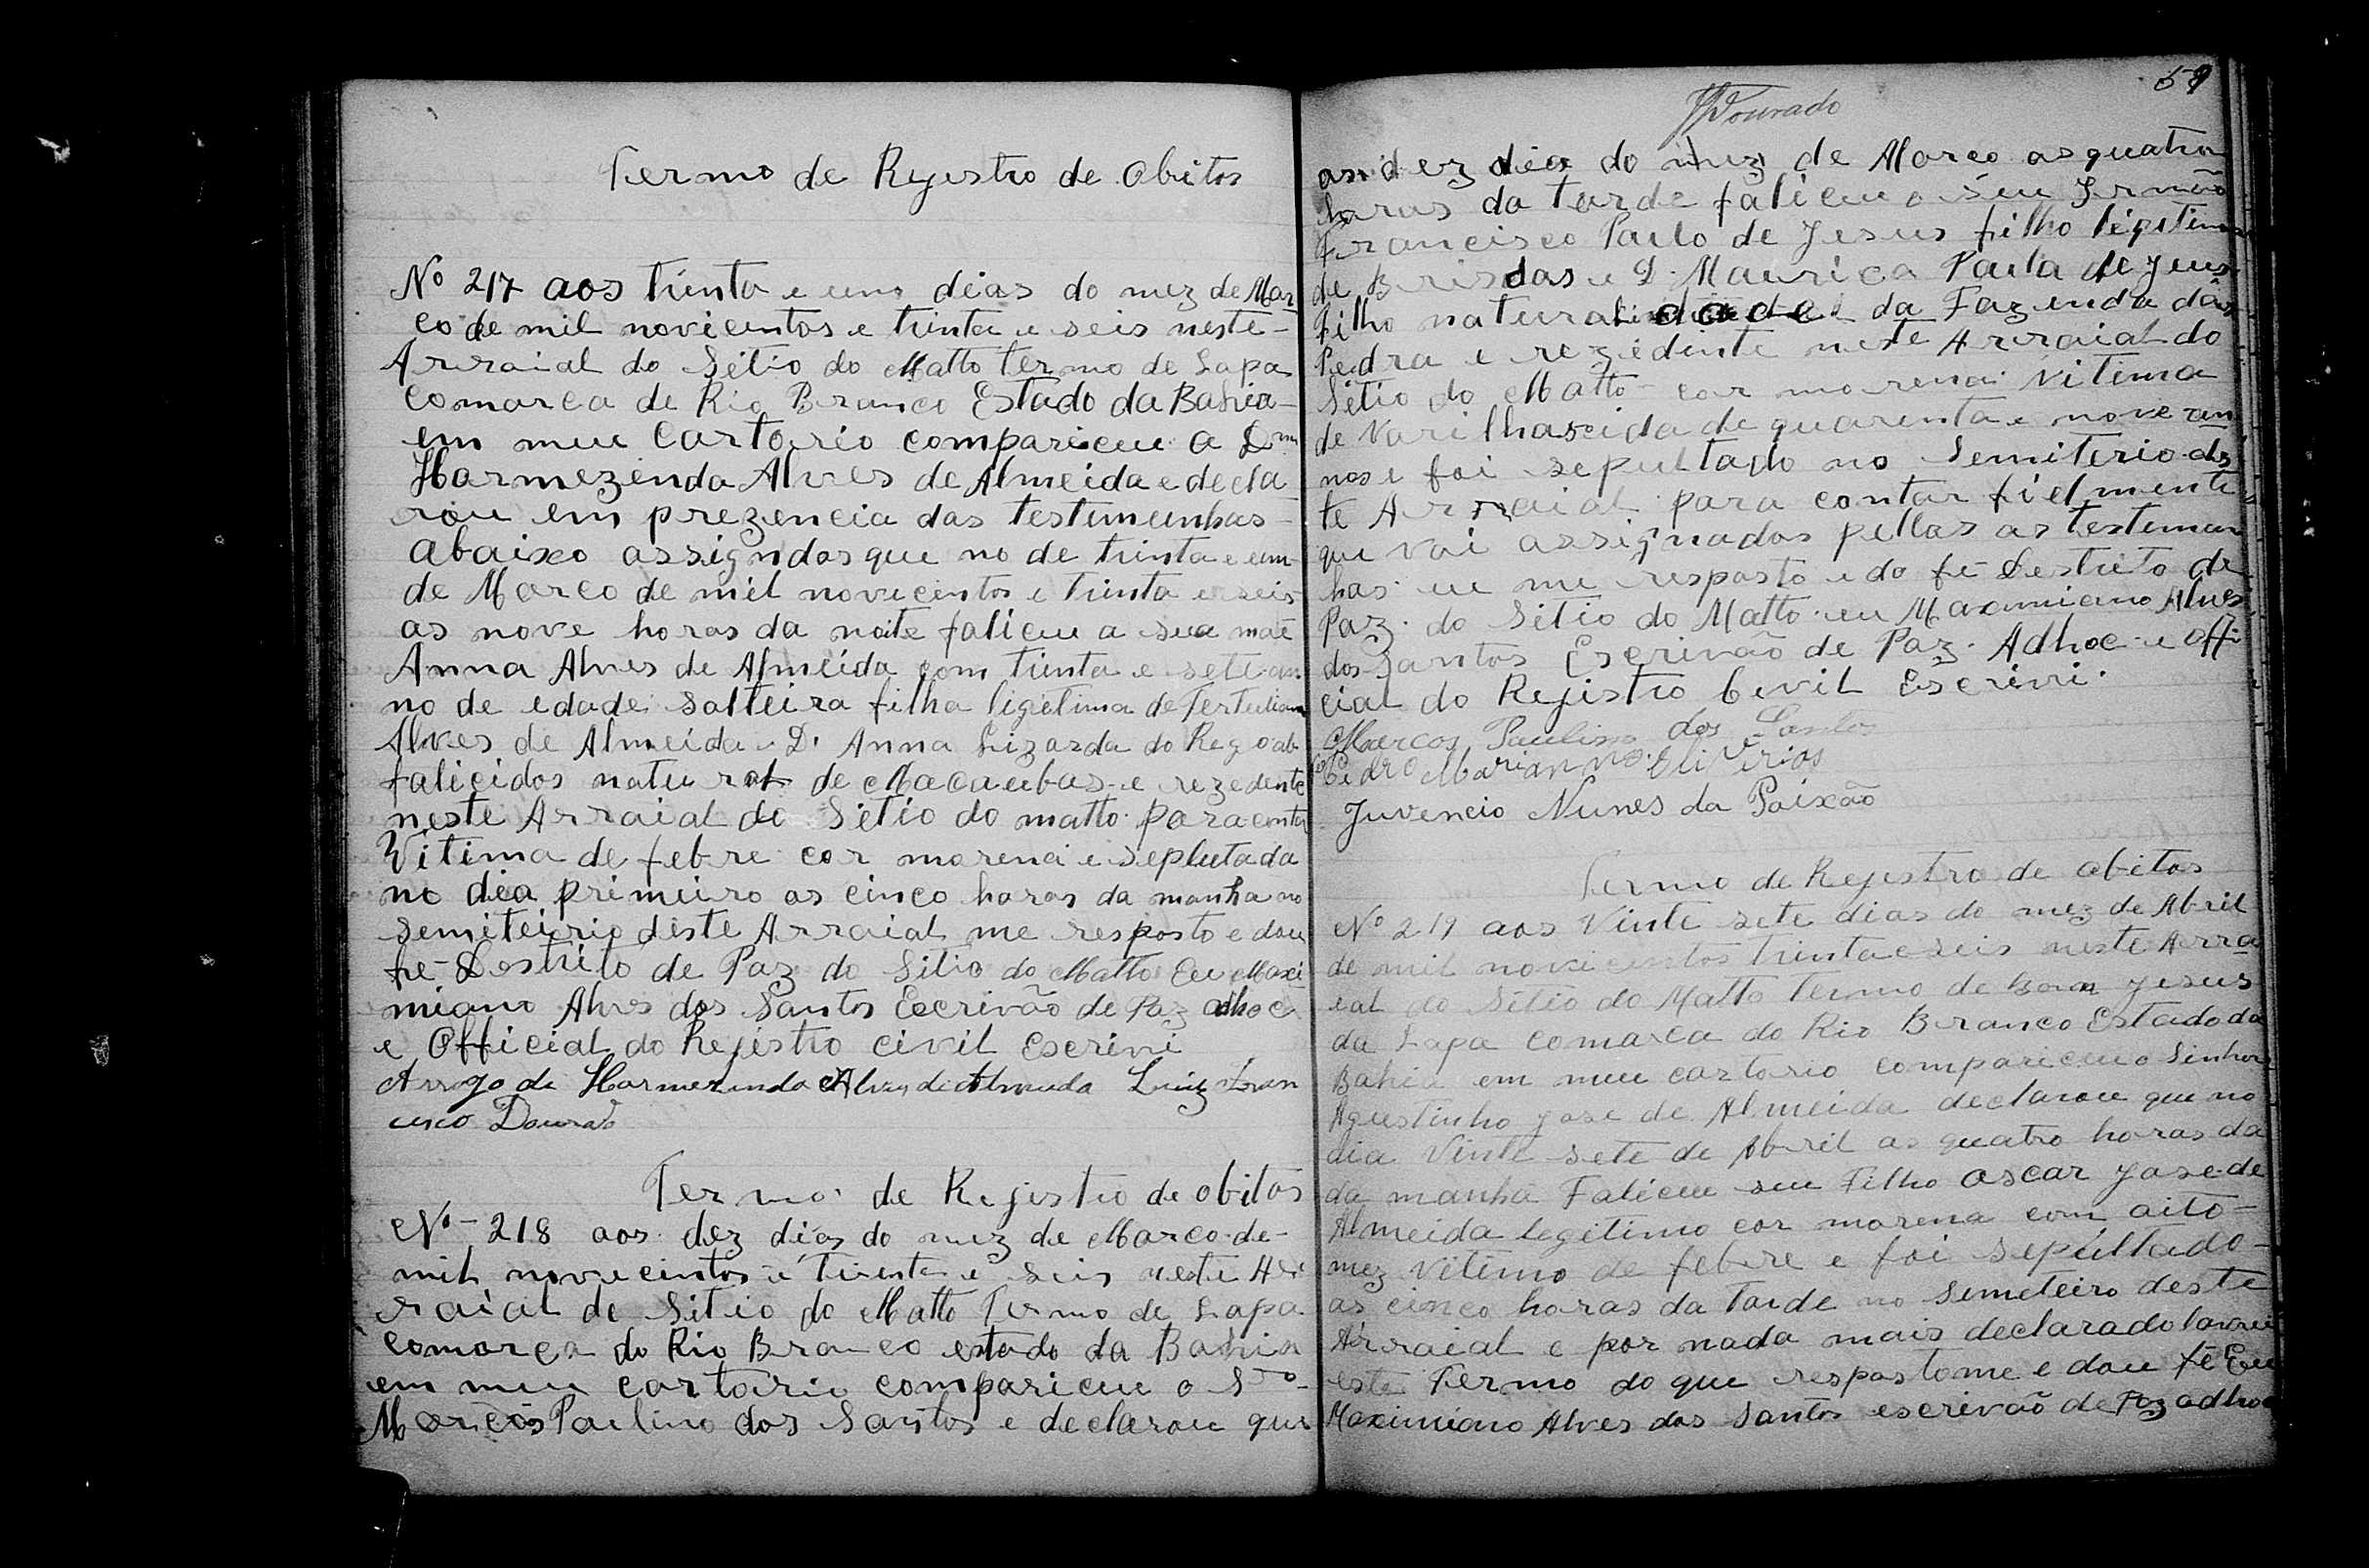 Termo de Rejestro de obitos
No 217 aos trinta e um dias do mez de Mar
co de mil novicentos e trinta e seis neste-
Arraial do Sitio do Matto termo de Lapa
Comarca de Rio Branco Estado da Bahia-
em meu Cartorio compariceu a Dna
Harmezenda Alves de Almeida e decla
rou em prezencia das testemunhas-
abaixo assigndos que no de trinta e um
de Marco de mil novecentos e trinta e seis
as nove horas da noite faliceu a sua mae
Anna Alves de Almeida com trinta e sete an
no de edade solteira filha ligietima de Tertulian
Alves de Almeida e D. Anna Lizarda do Rego ab
falicidos natural de Macaubas e rezedente
neste Arraial do Sitio do matto. para contar
Vitima de febre cor morena e seplutada
no dia primeiro as cinco horas da manha no
Semiteirio deste Arraial me resposto e dou
fe Destrito de Paz do Sitio do Matto Eu Maxi
miano Alves dos Santos Escrivão de Paz adhoc
e Official do Rejistro civil Escrivi
Arrogo de Harmezenda Alves de Almeida Luiz Fran
cisco Dourado
Termo de Rejistro de obitos
No-218 aos dez dias do mez de Marco-de-
mil novecentos e trinta e seis neste Ar
raial de Sitio do Matto Termo de Lapa
comarca do Rio Branco estado da Bahia
em meu cartorio compariceu o Snr
Marcos Paulino dos Santos e declarou que
59
Dourado
as dez dia do mez de Marco as quatro
horas da tarde faliceu o seu Irmão
Francisco Paulo de Jesus filho ligitimo
de Brisdas e D. Maurica Paula de Jesus
Filho natural da Fazenda das
Pedra e rezidente neste Arraial do
Sitio do Matto cor morena Vitima
de Varilhas eida de quarenta e nove an
nos e foi sepultado no Semiterio des
te Arraial para contar fielmente
que vai assignados pellas as testemun
has eu me resposto e do fe Destrito de
Paz do Sitio do Matto eu Maximiano Alves
dos Santos Escrivão de Paz Adhoc e offi
cial do Rejistro Cevil Escrivi.
Marcos Paulino dos Santos
Pedro Marianno Eliverios
Juvencio Nunes da Paixão
Termo de Rejistro de obitos
No 219 aos Vinte sete dias do mez de Abril
de mil novicentos trinta e seis neste Arra
ial do Sitio do Matto Termo de Bom Jesus
da Lapa comarca do Rio Branco Estado da
Bahia em meu cartorio compariceu o Sinhor
Agustinho Jose de Almeida declarou que no
dia Vinte sete de Abril as quatro horas da
da manhã Faliceu seu Filho Oscar Jose de
Almeida legitimo cor morena com oito-
mez vitimo de febre e foi sepultado-
as cinco horas da tarde no Semeteiro deste
Arraial e por nada mais declarado lavrei
este Termo do que respostome e dou fé Eu
Maximiano Alves dos Santos escrivão de Paz adhoc